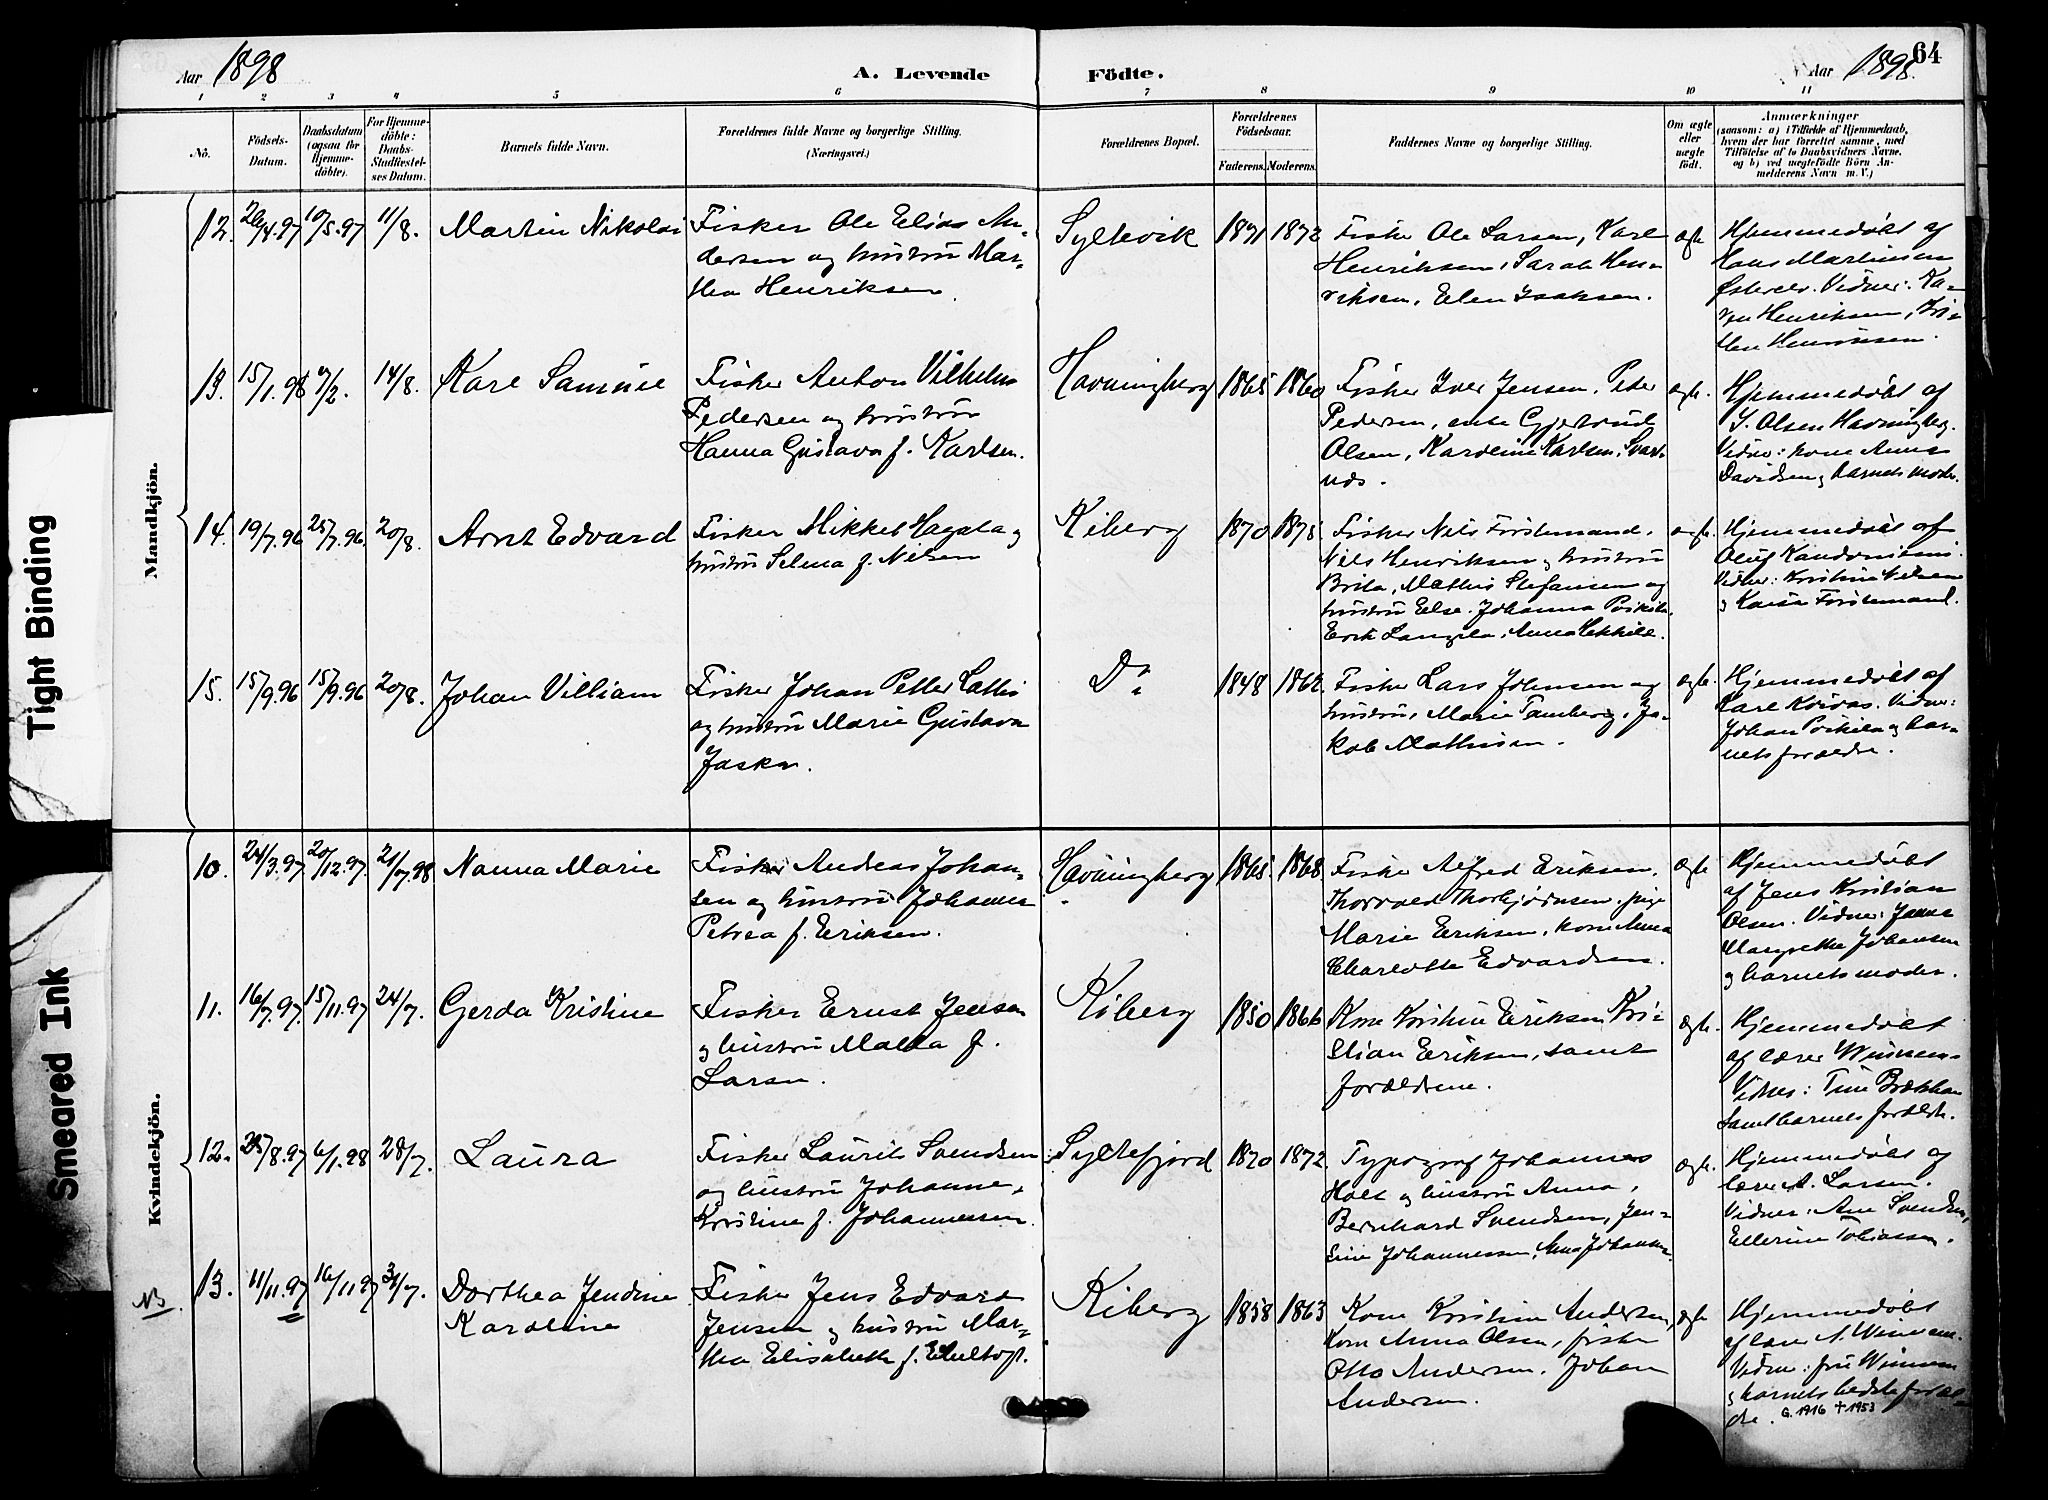 Aar 1898
A. Levende
Födte.
Aar 1898.
64
1 2 3 4 5 6 7 8 9 10 11
No.
Födsels-
Datum.
Daabsdatum
(ogsaa for
Hjemme-
döbte).
For Hjemme-
döbte:
Daabs-
Stadfæstel-
ses Datum.
Barnets fulde Navn.
Forældrenes fulde Navne og borgerlige Stilling.
(Næringsvei.)
Forældrenes Bopæl.
Forældrenes
Födselsaar.
Faderens.
Moderens.
Faddernes Navne og borgerlige Stilling.
Om ægte
eller
uægte
födt.
Anmærkninger
(saasom: a) i Tilfælde af Hjemmedaab,
hvem der har forrettet samme, med
Tilföielse af to Daabsvidners Navne,
og b) ved uægtefödte Börn An-
melderens Navn m. V.)
Mandkjön.
12. 20/4.97 10/5.97 11/8. Martin Nikolai
Fisker Ole Elias An-
dersen og hustru Mar-
tha Henriksen
Syltevik 1871 1872
Fisker Ole Larsen, Karl
Henriksen, Sarah Hen-
riksen, Elen Isaksen.
ægte
Hjemmedøbt af
Hans Martinsen
Vidner: Ka-
ren Henriksen,
Henriksen.
13. 15/1.98 14/8. Karl Samuel
Fisker Anton Vilhelm
Pedersen og hustru
Hanna Gustava f. Karlsen.
Havningberg 1865 1860
Fisker Iver Jensen, Peter
Pedersen, enke Gjertrud
Olsen, Karoline Karlsen,
ægte.
Hjemmedøbt af
J. Olsen Havningberg.
Vidner: kone Anna
Davidsen og barnets moder.
14. 19/7.96 25/7.96. 20/8. Arnt Edvard
Fisker Mikkel og
hustru Selma f. Nilsen
Kiberg 1870 1875
Fisker Nils
Nils Henriksen og hustru
Brita, Mathis Stefansen og
hustru Else. Johanna
Erik Anna
ægte.
Hjemmedøbt af
Oluf
Vidner: Kristine Nilsen
og
15. 15/9.96 15/9.96 20/8. Johan Villiam
Fisker Johan Petter
og hustru Marie Gustava
Do 1848 1862.
Fisker Lars Johnsen og
hustru, Marie Ja-
kob Mathisen.
ægte.
Hjemmedøbt af
Karl Vidner:
Johan og bar-
nets forældre.
Kvindekjön.
10. 24/3.97 20/12.97. 21/7.98 Nanna Marie
Fisker Andreas Johan-
sen og hustru Johanna
Petrea f. Eriksen.
Havningberg 1865. 1868.
Fisker Alfred Eriksen,
Thorvald Thorbjørnsen, pige
Marie Eriksen, kone Anna
Charlotte Edvardsen.
ægte
Hjemmedøbt
af Jens Kristian
Olsen. Vidner:
Margrethe Johansen
og barnets moder.
11. 16/7.97. 15/11.97 24/7. Gerda Kristine
Fisker Ernst Jensen
og hustru f.
Larsen.
Kiberg 1850 1866
Kone Kristine Eriksen, Kri-
stian Eriksen, samt
forældrene.
ægte.
Hjemmedøbt
af lærer
Vidner:
samt barnets forældre.
12. 25/8.97 6/1.98 28/7. Laura
Fisker Laurits Svendsen
og hustru Johanne
Kristine f. Johannessen.
Syltefjord 1870 1872.
Typograf Johannes
Holt og hustru Anna,
Bernhard Svendsen, Jen-
sine Johannessen,
ægte.
Hjemmedøbt af
lærer A. Larsen.
Vidner: Ane Svendsen,
Ellerine Tobiassen.
NB 13. 11/11.97 16/11.97 31/7. Dorthea Jendine
Karoline
Fisker Jens Edvard
Jensen og hustru Mar-
tha Elisabeth f.
Kiberg 1858 1863
Kone Kristine Andersen,
kone Anna Olsen, fisker
Otto Andersen, Johan
Andersen.
ægte
Hjemmedøbt
af lærer A.
Vidner: fru
og barnets bedstefor-
ældre. G. 1916 † 1953
Tight Binding
Smeared Ink